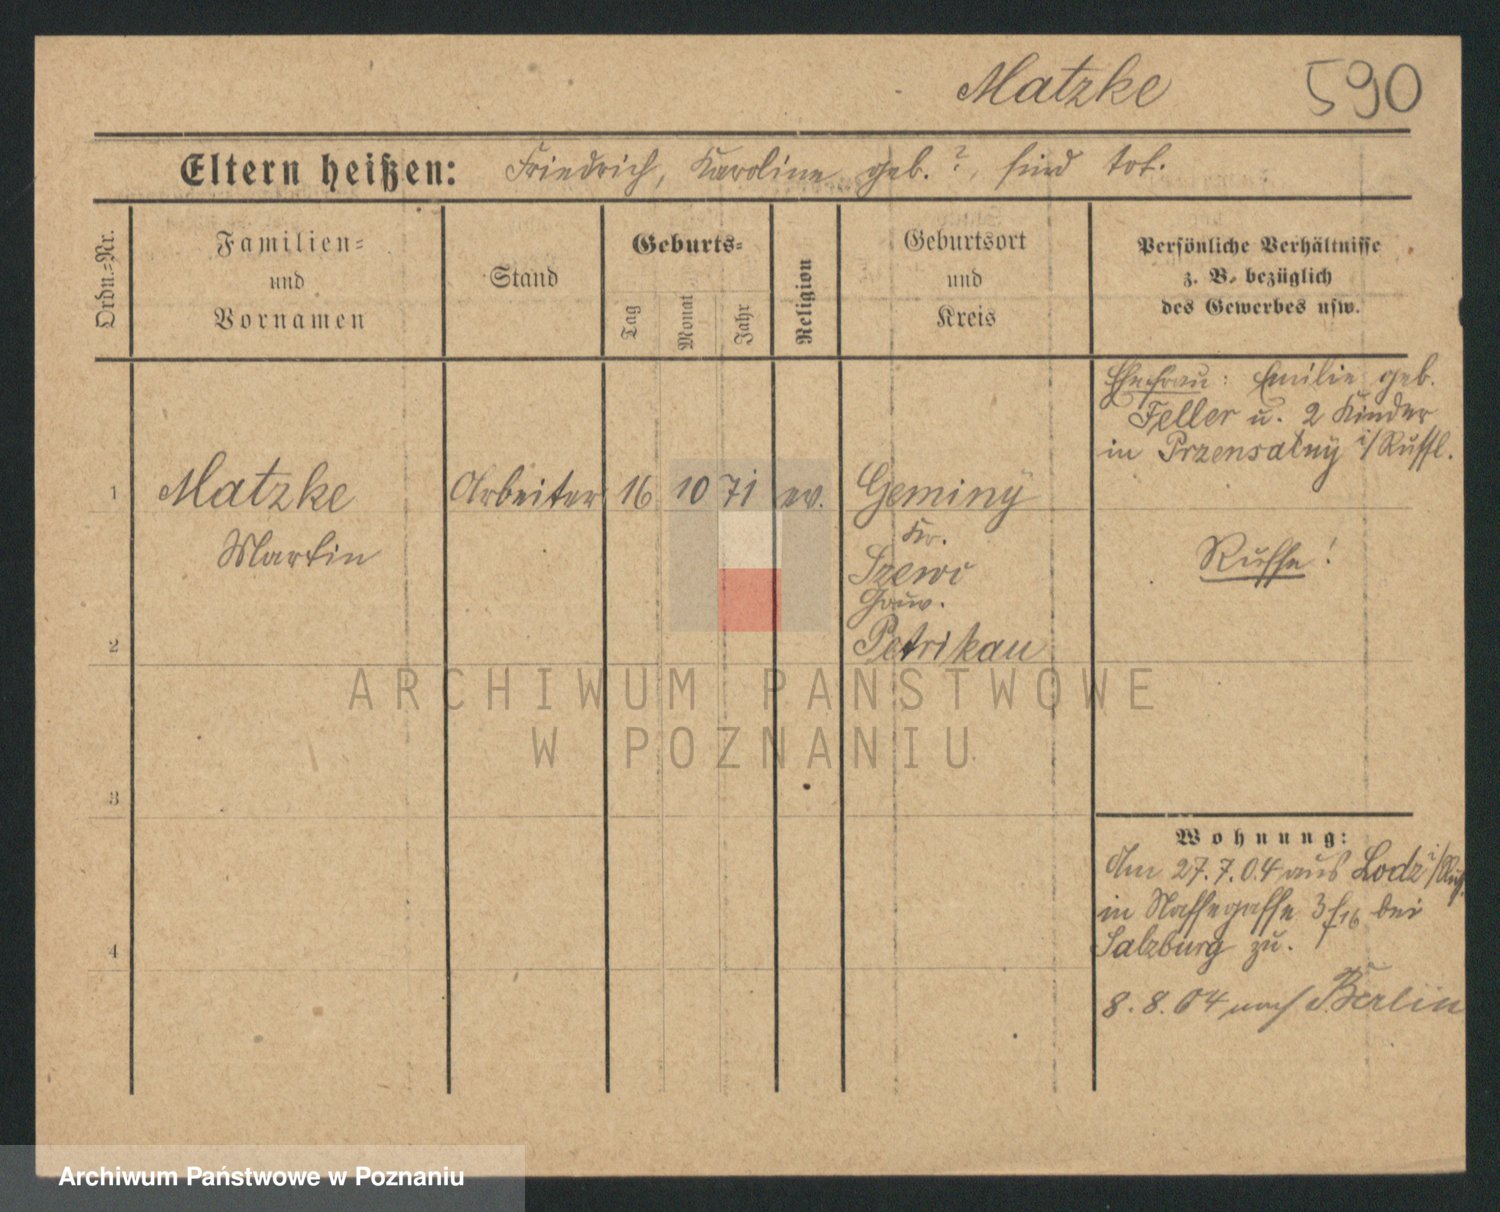 Matzke 590
Eltern heißen: Friedrich, Karoline geb. ?, sind tot.
Ordn.=Nr.
Familien=
und
Vornamen
Stand
Geburts=
Tag
Monat
Jahr
Religion
Geburtsort
und
Kreis
Persönliche Verhältnisse
z. B. bezüglich
des Gewerbes usw.
Ehefrau: Emilie geb.
Feller u. 2 Kinder
in Przensatny i/Russl.
1 Matzke Arbeiter 16 10 71 ev. Geminy
Martin
Kr.
Szewo
Gouv.
Petrikau
Russe!
2
3
4
Wohnung:
Am 27.7.04 aus Lodz i/Russ.
in Nassegasse 3 bei
Salzburg zu.
8.8.04 nach Berlin
ARCHIWUM PAŃSTWOWE
W POZNANIU
Archiwum Państwowe w Poznaniu